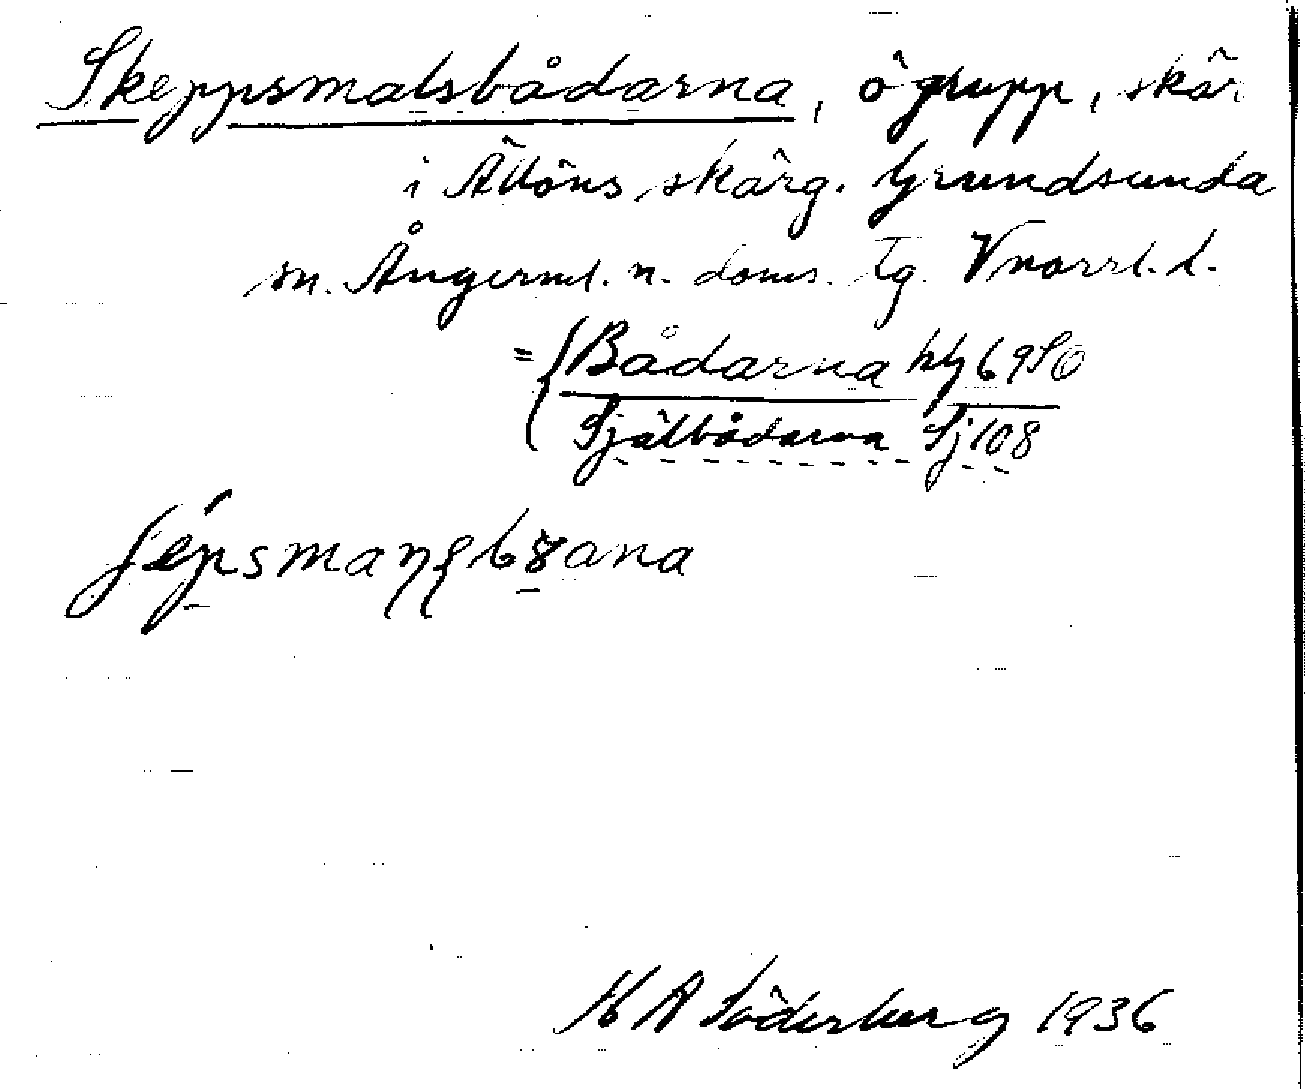 Skeppsmalsbådarna, ögrupp, skär
i Ällöns skärg. Grundsunda
sn. Ångerml. n. doms. tg. Vnorrl. l.
= Bådarna hlj 69 SO
Själbådarna Sj 108
H A Söderberg 1936